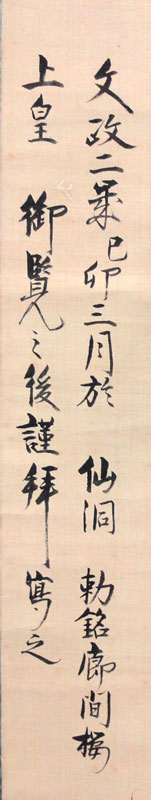 文政二歳己卯三月於 仙洞 勅銘廊間桜
上皇 御覧之後謹拝写之